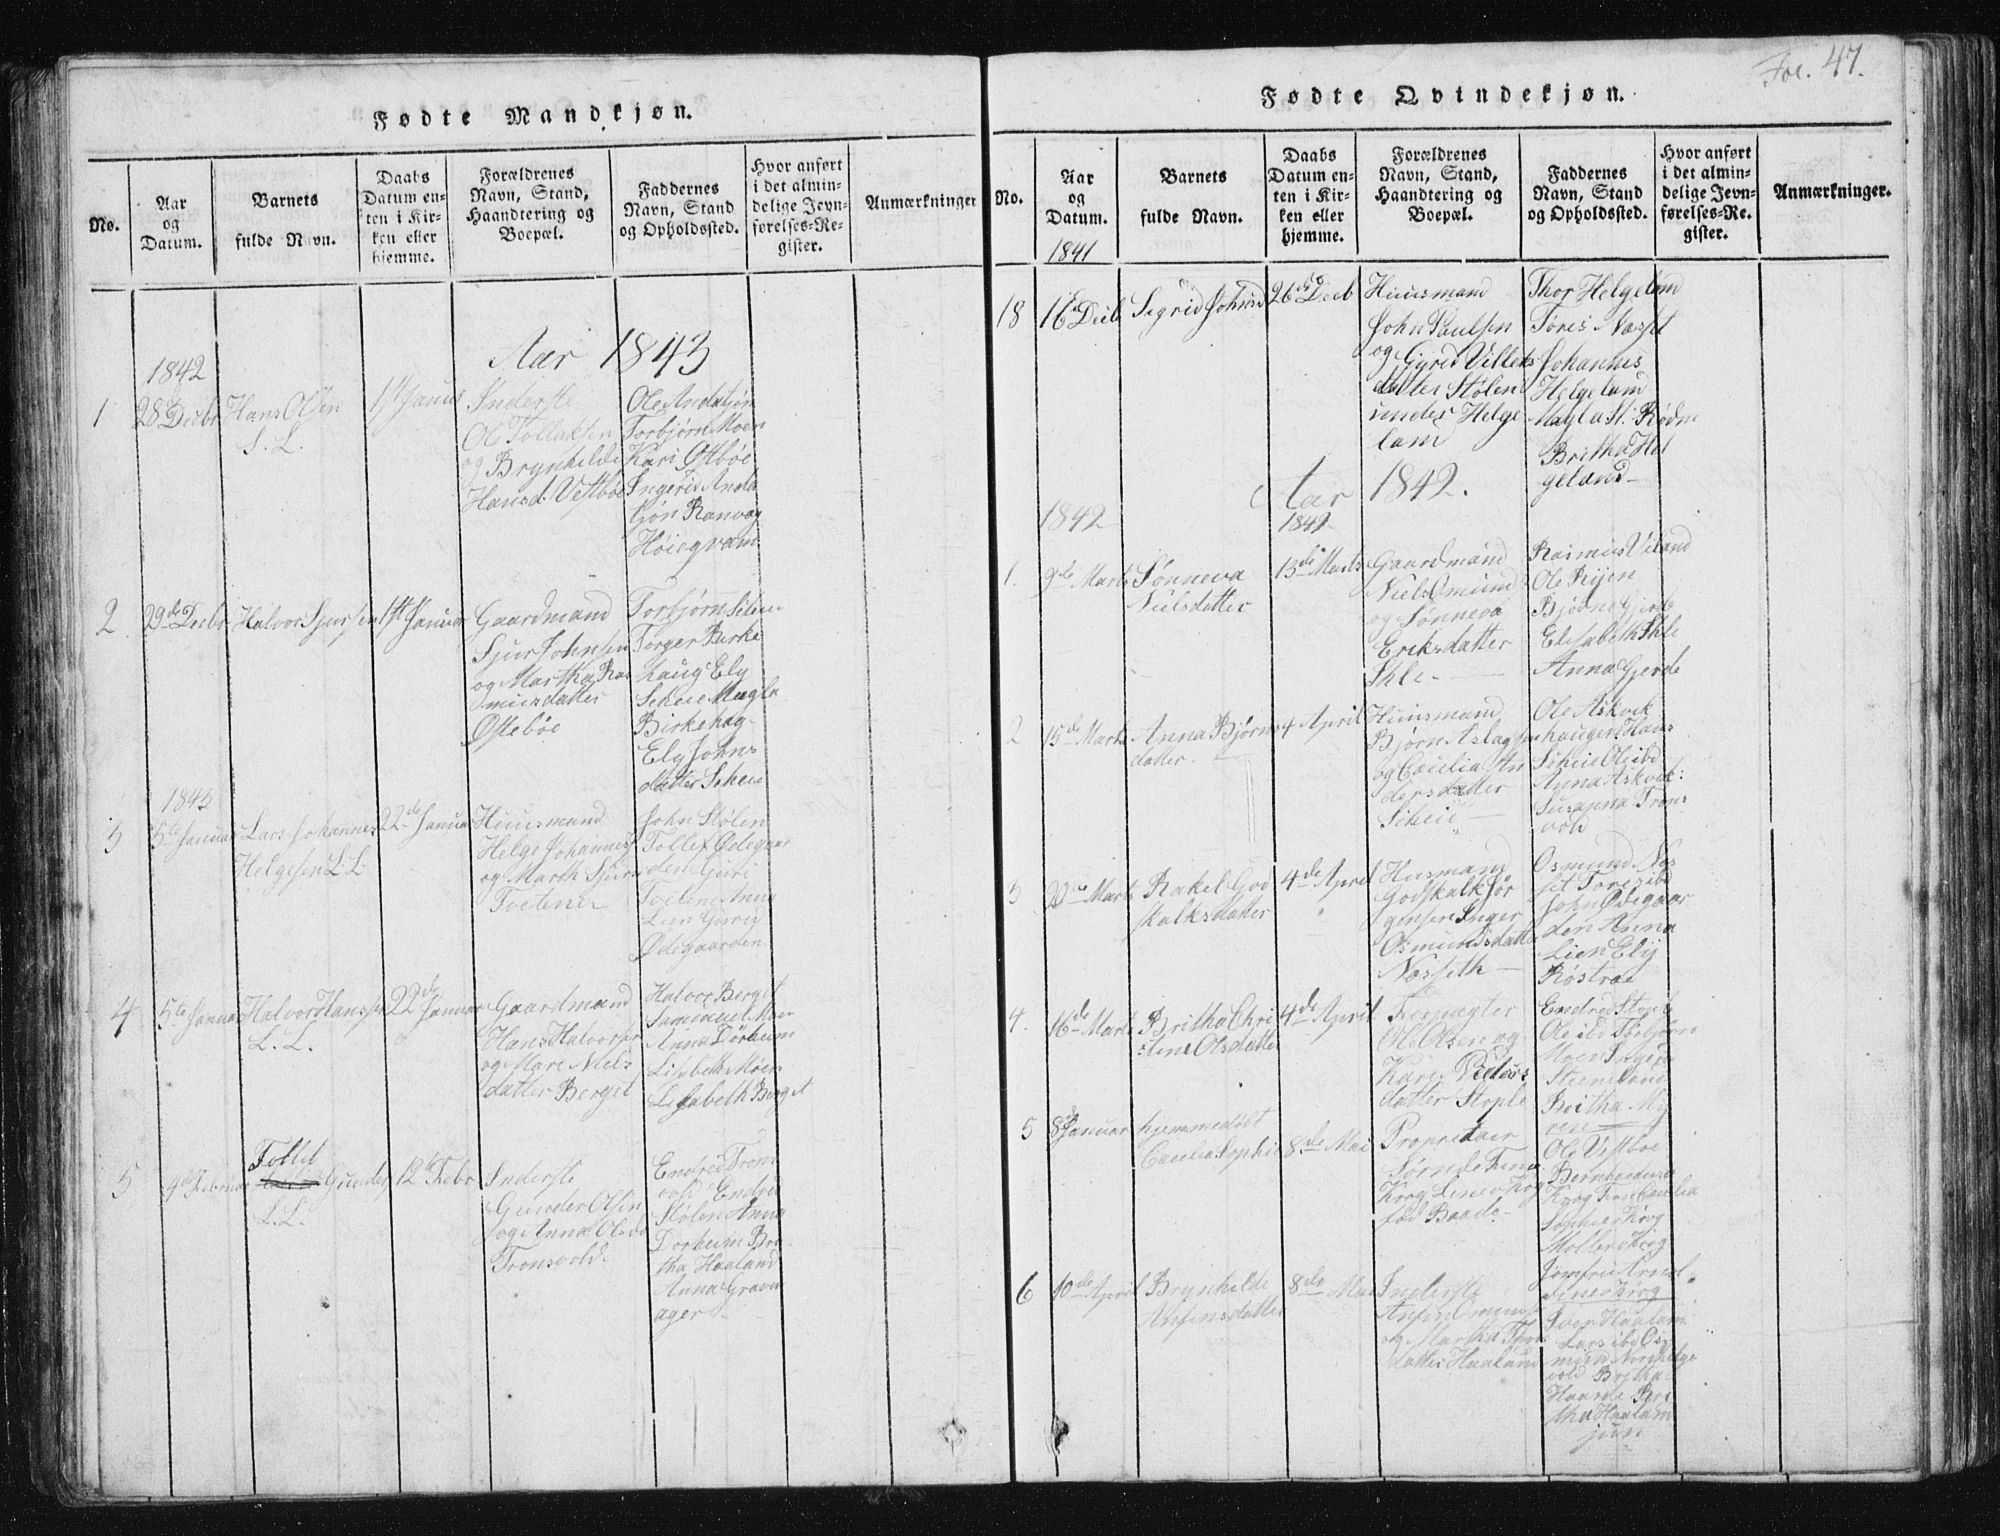 Fødte Mandkjøn.
No.
Aar
og
Datum.
Barnets
fulde Navn.
Daabs
Datum en-
ten i Kir-
ken eller
hjemme.
Forældrenes
Navn, Stand,
Haandtering og
Boepæl.
Faddernes
Navn, Stand
og Opholdssted.
Hvor anført
i det almin-
delige Jevn-
førelses-Re-
gister.
Anmærkninger
Aar 1843
1842
1
28 Decbr
Hans Olsen
L. L.
1st Januar
Inderste
Ole Tollaksen
og Brynhilde
Hansd. Vestbøe
Ole
Torbjørn Moen
Kari Østbøe
Ingerid Anda
Ranvag
2
29de Decbr
Halvor Sjursen
1st Januar
Gaardmand
Sjur Johnsen
og Martha Ras
musdatter
Østebøe
Torbjørn
Torger Birke
haug Ely
Scheie Magla
Birkehog
Ely Johns
datter Scheie
1843
3
5te Januar
Lars Johannes
Helgesen L. L.
22de Januar
Huusmand
Helge Johannes
og Marth Sjurs
John Stølen
Tollef Ødegaar
den Guri
Lien
Ødegaarden
4
5te Januar
Halvor Hanssen
L. L.
22de Januar
Gaardmand
Hans Halvorsen
og Mari Niels
datter Berget
Halvor Berget
Samuel Moen
Anna Dørheim
Lisbeth Moen
Lisabeth Berget
5
9de Februar
Tollef
Gunder
L. L.
12te Febr
Inderste
Gunder Olsen
og Anna Olsd
Tronsvold
Endre Trons
vold Endre
Stølen Anna
Dorheim Bri
tha Haaland
Anna Graven
ager
Foe. 47.
Fødte Qvindekjøn.
No.
Aar
og
Datum.
1841
Barnets
fulde Navn.
Daabs
Datum en-
ten i Kir-
ken eller
hjemme.
Forældrenes
Navn, Stand,
Haandtering og
Boepæl.
Faddernes
Navn, Stand
og Opholdssted.
Hvor anført
i det almin-
delige Jevn-
førelses-Re-
gister.
Anmærkninger.
18
16 Decb
Sigrid Johnsd
26de Decb
Huusmand
John Paulsen
og Gyrid Villeks
datter Stølen
under Helge
lam
Thor Helgeland
Tøres Nasset
Johannes
Helgelam
Magla St. Rødne
Britha Hel
geland
Aar 1842.
1842
1842
1.
9de Marts
Sønneva
Nielsdatter
13de Marts
Gaardmand
Niels Omund
og Sønneva
Eriksdatter
Skle
Rasmus Viland
Ole Rijen
Bjødne Gjerde
Elisabeth Skle
Anna Gjerde
2
15de Marts
Anna Bjørns
datter
4 April
Huusmand
Bjørn Aslagsen
og Cecelia An
dersdatter
Scheie
Ole Askvik
haugen Hans
Scheie Ole ibd
Anna Askvik
Susanna Trons
vold
3
20de Marts
Rakel God
skalksdatter
4de April
Husmand
Godskalk Jør
gensen Inger
Osmundsdatter
Nasseth
Osmund Nas
set Tores ibd
John Ødegaar
den Anna
Lien Elij
Røstrae
4.
16de Marts
Britha Chri
stine Olsdatter
4de April
Ole Olsen og
Kari Peders
datter Stople
Endre Stople
Ole ibd Torbjørn
Moen
Steensland
Britha My
ren
5
8de Januar
hjemmedøbt
Cecelia Sophie
8de Mai
Proprietair
Sørn de Fine
Krog Linev Krog
fød Baade
Ole Vestboe
Bernhardus
Krog Cecelia
Sophie Krog
Møller Krog
Jomfrue Arnol
dine Krog
6
10de April
Brynhilde
Anfinsdatter
8de Mai
Inderste
Anfin Omunds
og Martha Thor
datter Haaland
Iver Haaland
Lars ibd Os
mund Norhelge
vold Britha
Haavde Bri
tha Haaland
jun